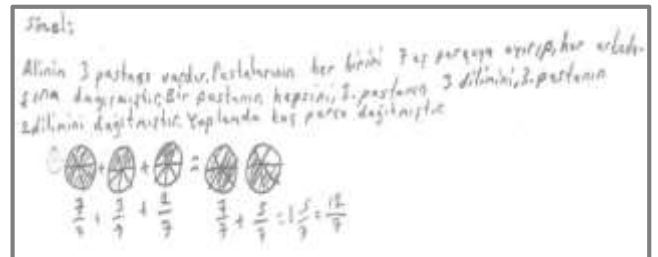 Sinel:
Alinin 3 pastası vardır. Pastalarının her birini 7 eş parçaya ayırıp, her arkada-
şına dağıtmıştır. Bir pastanın hepsini, 2. pastanın 3 dilimini, 3. pastanın
2 dilimini dağıtmıştır. Toplamda kaç parça dağıtmıştır
+ + =
7/7 + 3/7 + 2/7 7/7 + 5/7 = 1 5/7 = 12/7